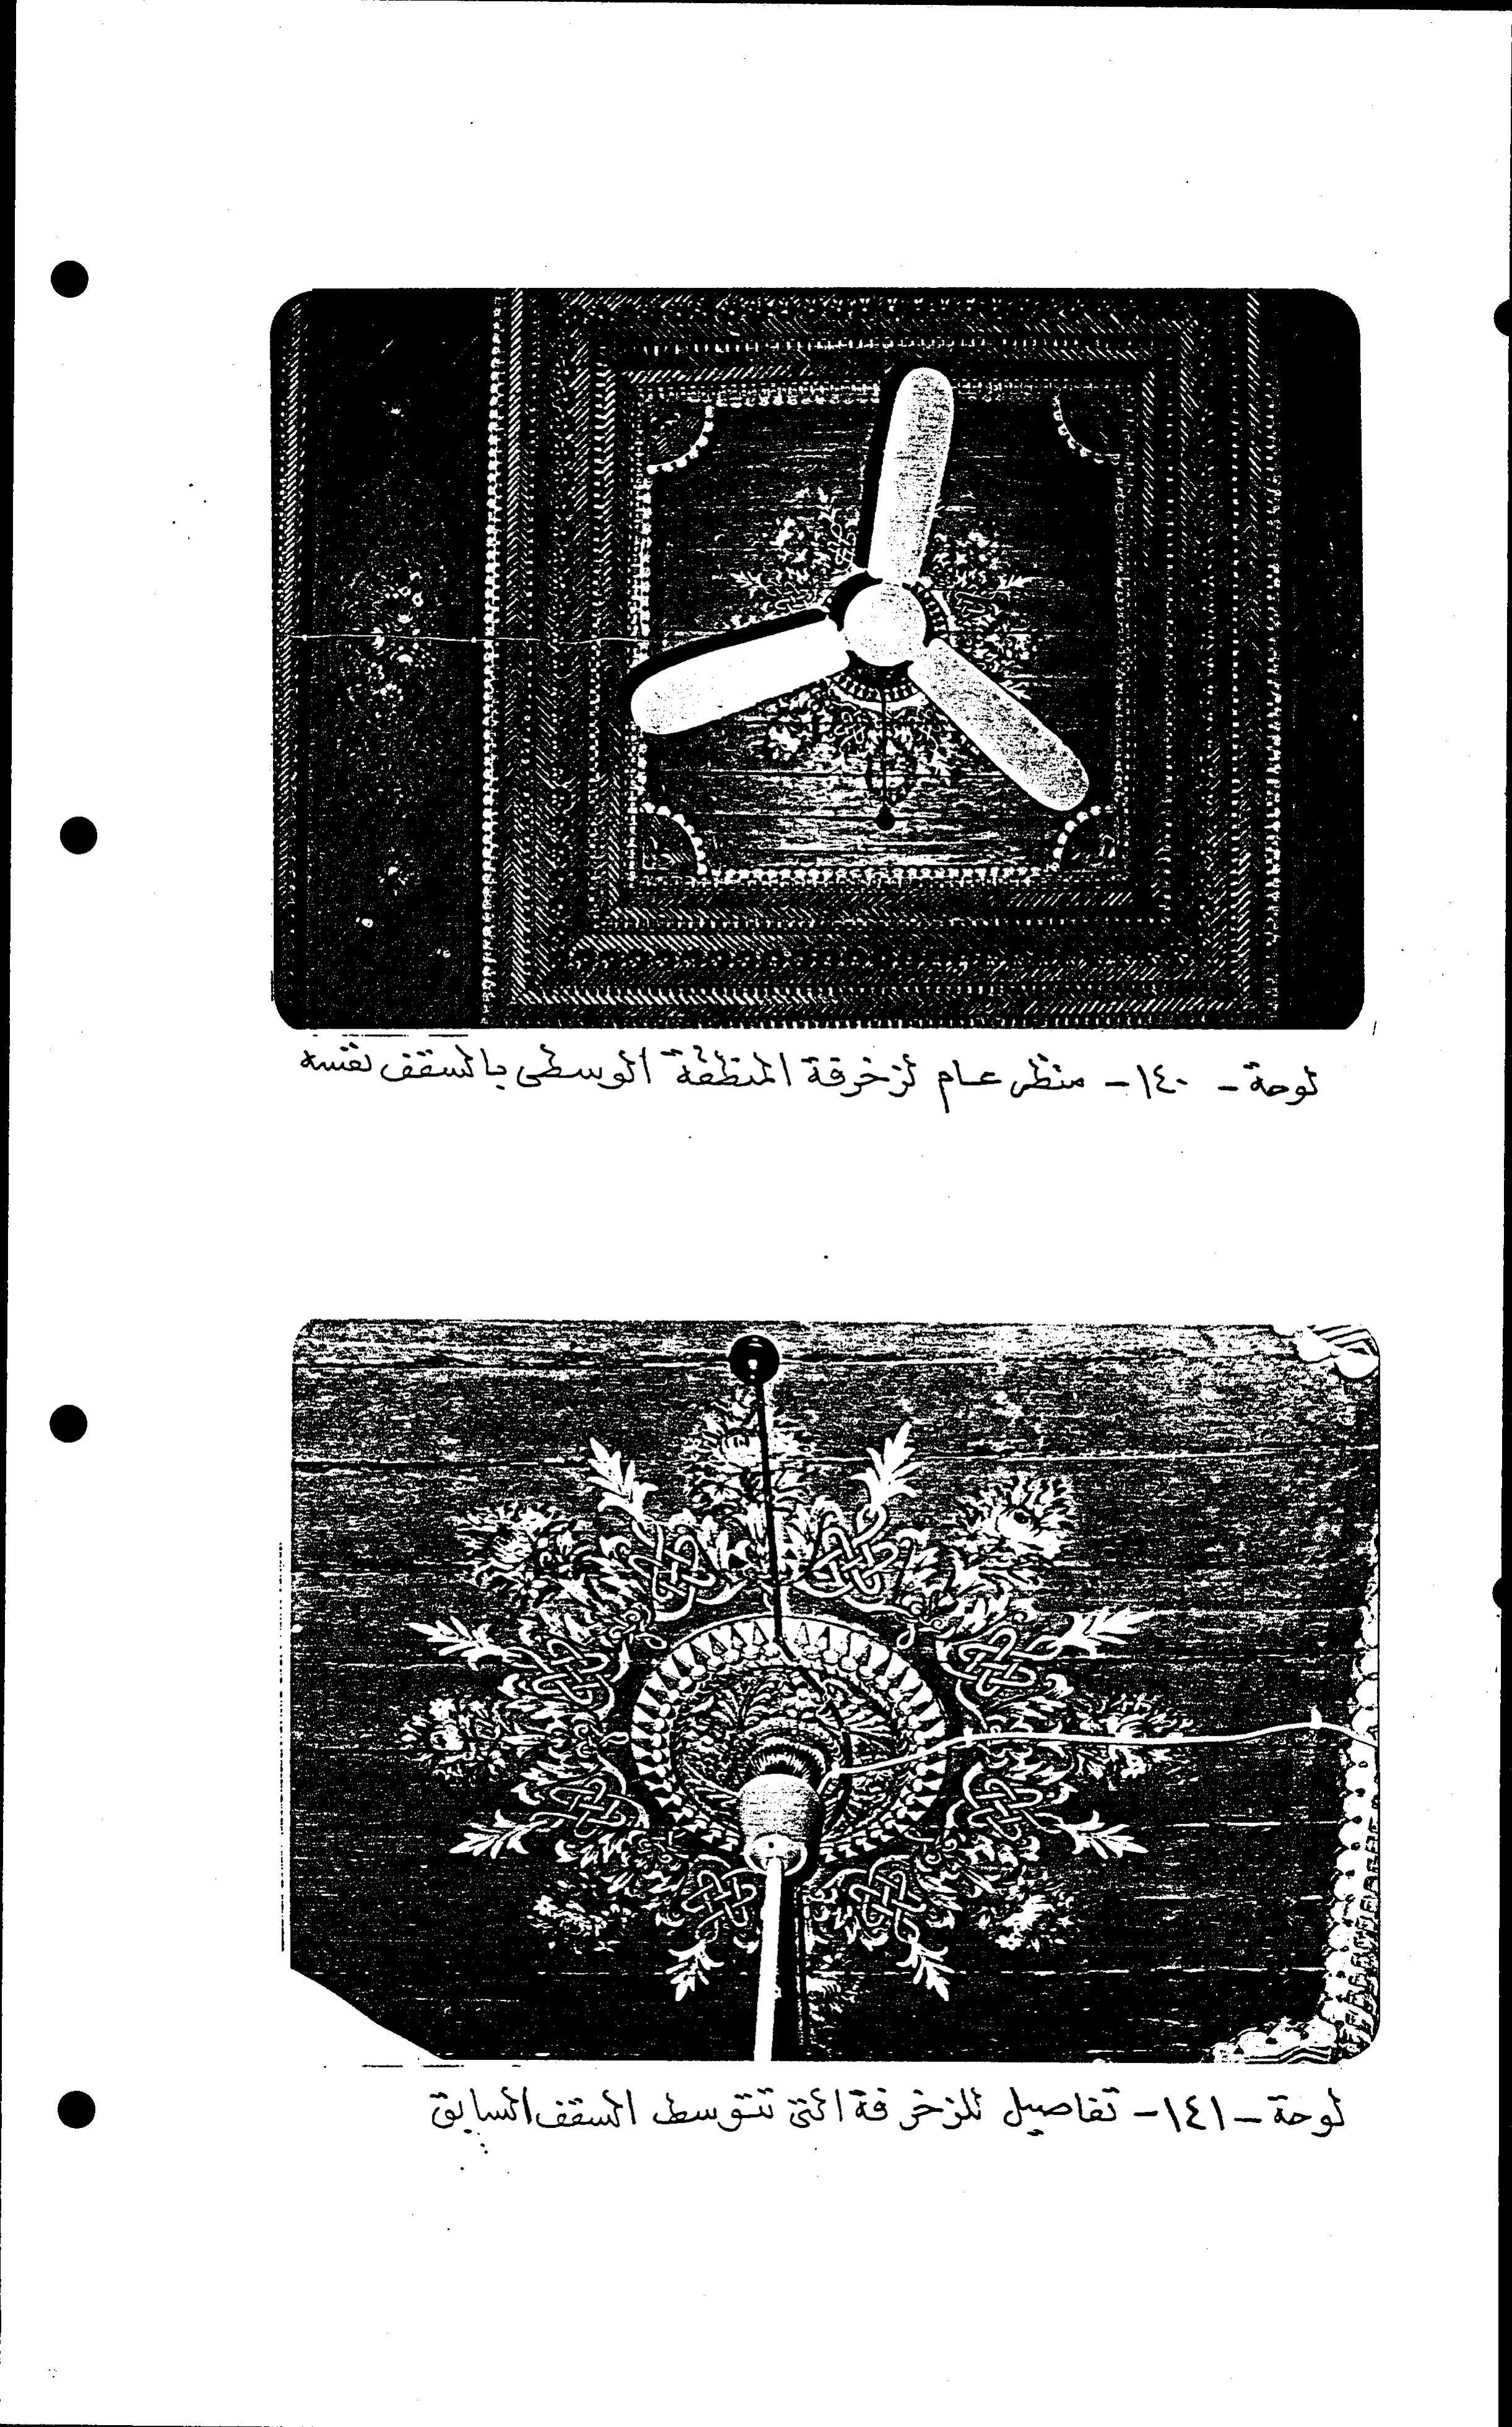 لوحة - ١٤٠ - منظر عام لزخرفة المنطقة الوسطى بالسقف نفسه
لوحة - ١٤١ - تفاصيل للزخرفة التى تتوسط السقف السابق